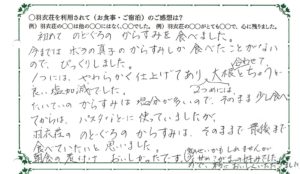 ◯羽衣荘を利用されて（お食事・ご宿泊）のご感想は？
例）羽衣荘の◯◯は他の◯◯にはなく、◯◯でした。 例）羽衣荘の◯◯がとても◯◯で、心に残りました。
初めて のどぐろの からすみを食べました。
今までは ボラの真子のからすみしか食べたことがない
ので、びっくりしました。
1つには、やわらかく仕上げてあり 大根と合わせてちょうど
良い塩加減でした。 2つめには、
たいていのからすみは 塩分が多いので、そのまま少し食べ
てからは、パスタなどに使っていましたが、
羽衣荘の のどぐろの からすみは、そのままで 最後まで
食べていたいと思いました。
朝食の煮付け おいしかったです